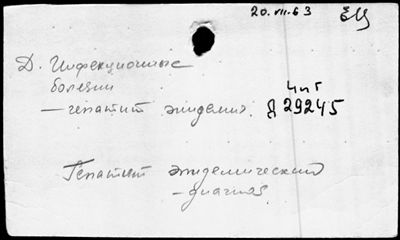 20.VII.63 ЕЦ
Д. Инфекционные
болезни
чпг
— гепатит эпидемич. Д 29245
Гепатит эпидемический
— диагноз